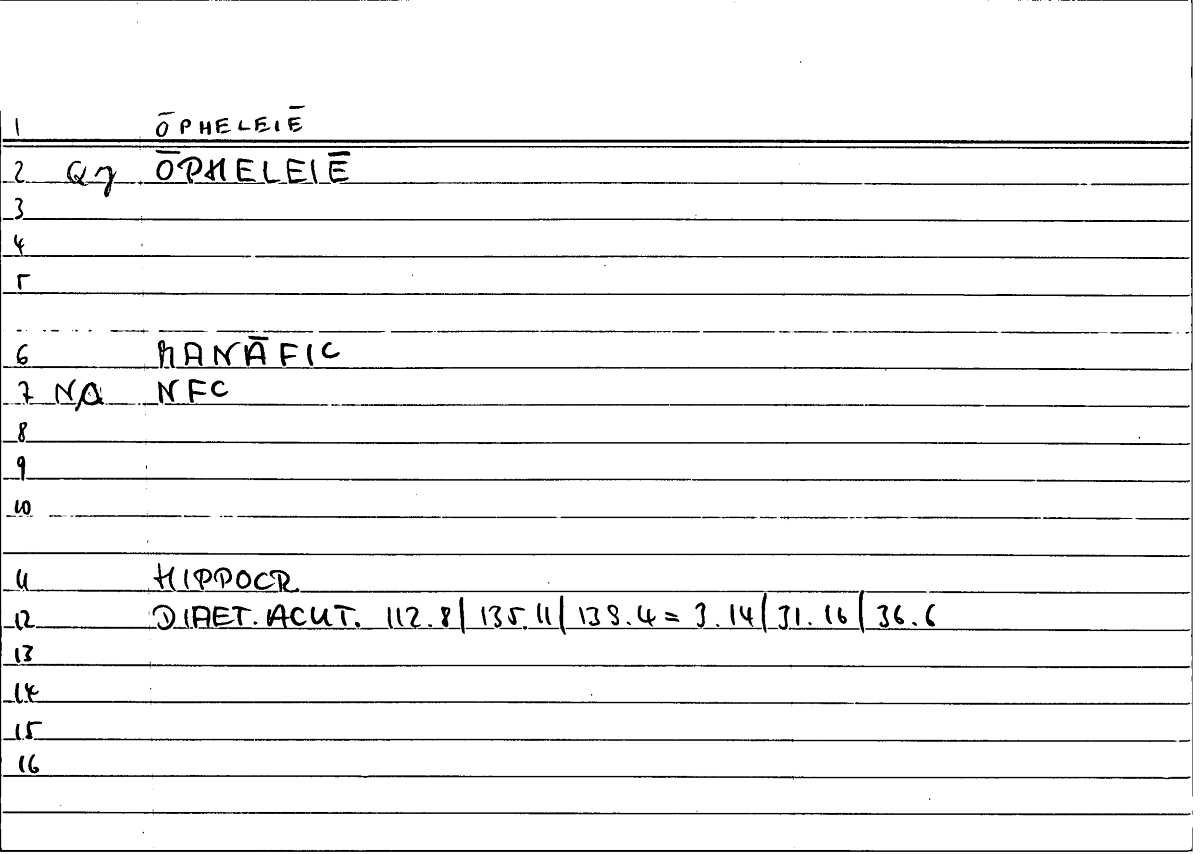 1 ŌPHELEIĒ
2 Q7 ŌPHELEIĒ
3
4
5
6 MANĀFIC
7 NA NFC
8
9
10
11 HIPPOCR
12 DIAET. ACUT. 112.8| 135.11| 139.4 = 3.14| 31.16| 36.6
13
14
15
16